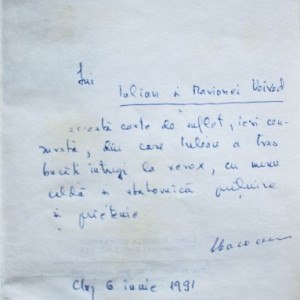 Lui
Iulian și Marianei Voivod
această carte de suflet, ieri cen-
zurată, din care Iulian a tras
bucăți întregi la xerox, cu
caldă și statornică prețuire
și prietenie
Cluj 6 iunie 1991